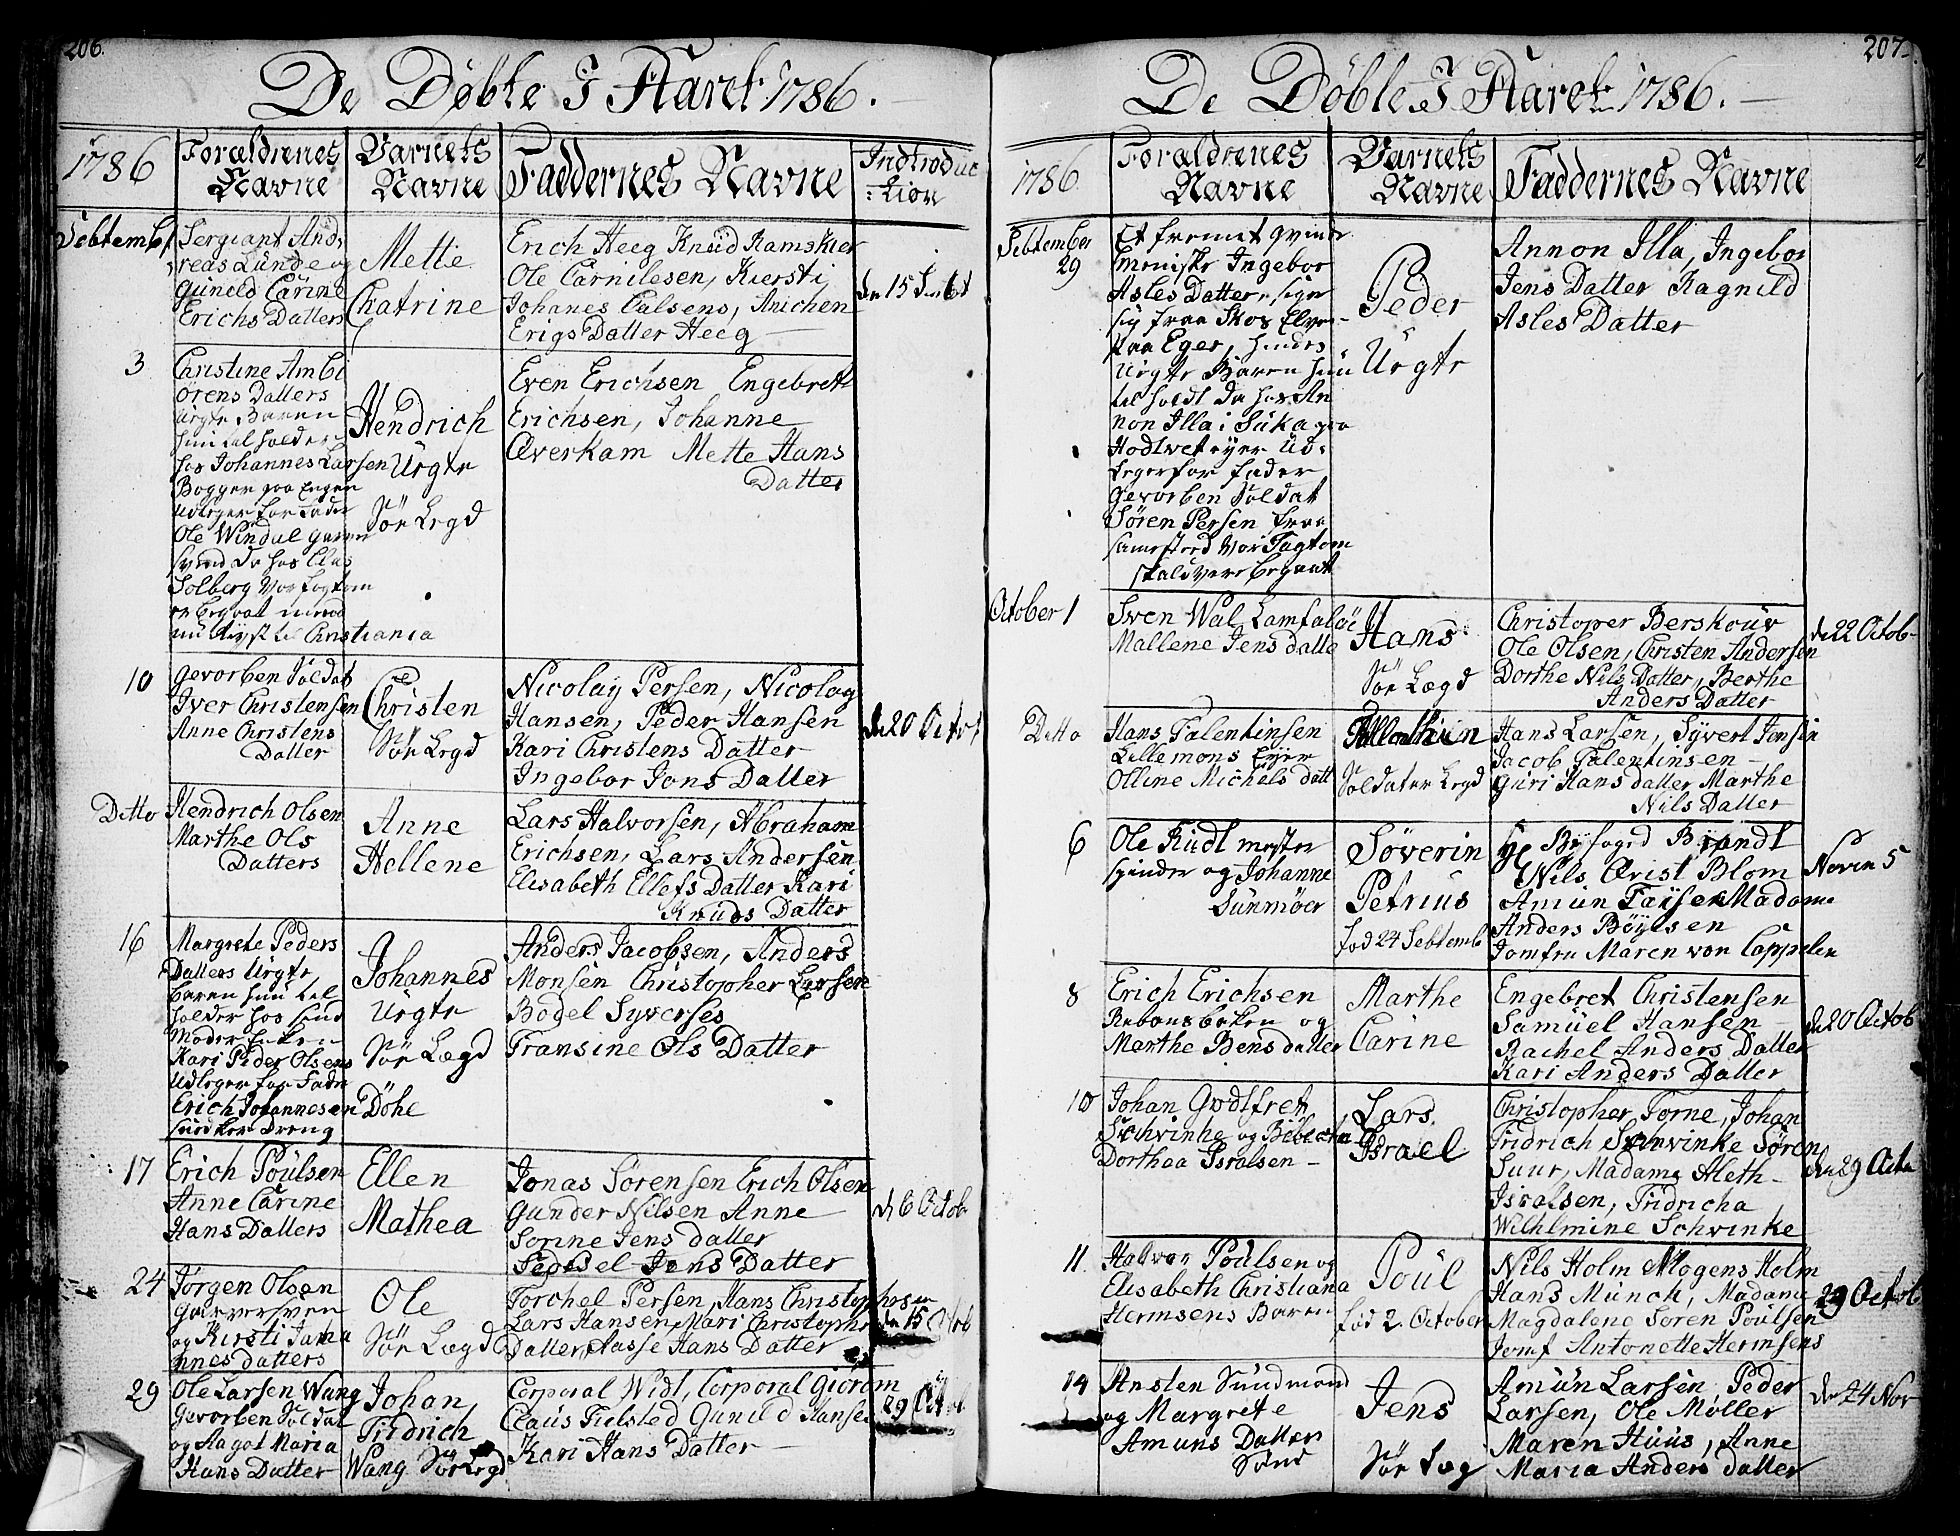 206.
De Døbte I Aaret 1786.
1786
Forældrenes Navne
Barnets Navne
Faddernes Navne
Indtroduc:tion
Sebtembr
Sergiant And:
reas Lunde og
Guneld Carine
Erichs Datters
Mette
Chatrine
Erich Heeg Knud Ramskier
Ole Carnilesen, Kiersti
Johanes Calsens, Anichen
Erigs Datter Heeg
den 15
3
Christine Ambi
örens Datters
Urgte Baren
hun tel holder
hos Johannes Larsen
Bogger paa Engen
udleger for Fader
Ole Windul
svend da hos Clas
Solberg
er begaat
Christiania
Hendrich
Urgte
Sør Legd
Even Erichsen Engebret
Erichsen, Johanne
Averkam Mette Hans
Datter
10
Gevorben Soldat
Iver Christensen
Anne Christens
Datter
Christen
Sør Legd
Nicolay Persen, Nicolay
Hansen, Peder Hansen
Kari Christens Datter
Ingebor Jons Datter
den 20 Octobr
Ditto
Hendrich Olsen
Marthe Ols
Datters
Anne
Hellene
Lars Halvorsen, Abraham
Erichsen, Lars Andersen
Elisabeth Ellefs Datter Kari
Knuds Datter
16
Margrete Peders
Datters Urgte
baren hun tel
holder hos sind
Moder Enken
Kari Peder Olsens
udleger for Fader
Erich Johannesen Döhe
Dreng
Johannes
Urgte
Sør Lægd
Anders Jacobsen, Anders
Monsen Christopher Larsen
Bodel Syverses
Fransine Ols Datter
17
Erich Poulsen
Anne Carine
Hans Datters
Ellen
Mathea
Jonas Sørensen Erich Olsen
Gunder Nilsen Anne
Sorine Jens datter
Sedsel Jens Datter
d 6 Octob
24
Jörgen Olsen
og Kirsti Joha
nnes datters
Ole
Sør Lægd
Torchel Persen, Hans Christophersen
Lars Hansen, Mari Christophr
Datter, Aasse Hans Datter
den 15 Octob
29
Ole Larsen Wang
Gevorben Soldat
og Aagot Maria
Hans Datter
Johan
Fridrich
Wang Sør Legd
Corporal Widt, Corporal Gioram
Claus Fielsted Gunild Hanses
Kari Hans Datter
29 Octob
207.
De Døbte I Aaret 1786.
1786
Forældrenes Navne
Barnets Navne
Faddernes Navne
Sebtember
29
Et fremet qvinde
meniske Ingebor
Asles Datter, siger
sig fraa Skos Elven
paa Eger, hindes
Urgte Baren hun
tel holdt da hos An
non Illa i
Hodlvet eyer Ud:
legerfor fader
Gevorben Soldat
Sören Persen fraa
samested
skal være begaat
Peder
Urgte
Annon Illa, Ingebor
Jens Datter Ragnild
Asles Datter
October 1
Sven Wal Lamfaløe
Mallene Jens datte
Hans
Sør Lægd
Christoper Berskouv
Ole Olsen, Christen Andersen
Dorthe Nils Datter, Berthe
Anders Datter
de 22 Octob
Ditto
Hans Falentinsen
Lillemons Eyer
Olline Michels datt
Soldater Legd
Hans Larsen, Syvert Jensen
Jacob Falentinsen
Guri Hans datter Marthe
Nils Datter
6
Ole Rudt mester
spinder og Johanne
Sunmöer
Söverin
Petrius
fød 24 Sebtemb
Hr Byfoged Brandt
Nils Crist Blom
Amun Madame
Anders Böyesen
Jomfru Maren von Cappelen
Novem 5
8
Erich Erichsen
Rebansbaken og
Marthe Bens datter
Marthe
Carine
Engebret Christensen
Samuel Hansen
Rachel Anders Datter
Kari Anders Datter
de 20 Octob
10
Johan Godtfret
Schvinke og
Dorthea Isralsen
Lars
Israel
Christopher Torne, Johan
Fridrich Schvinke Sören
Suur, Madame Aleth
Isralsen, Fridricha
Wilhlmine Schvinke
den 29 Octo
11.
Halvor Poulsen og
Elisabeth Christiana
Hermsens Baren
Poul
fød 2. October
Nils Holm Mogens Holm
Hans Munch, Madame
Magdalene Soren Poulsen
Jomf Antonette Hermsens
29 Octob
14
Ansten Sundmand
og Margrete
Amuns Datter
Jens
Sør Læg
Amun Larsen, Peder
Larsen, Ole Möller
Maren Huus, Anne
Maria Anders datter
den 24 Nov